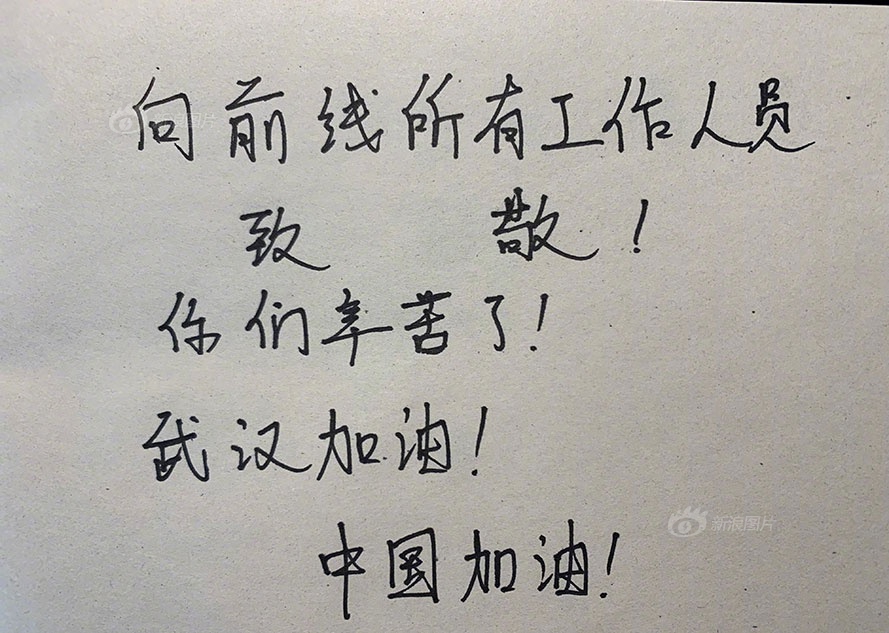 向前线所有工作人员
致 敬！
你们辛苦了！
武汉加油！
新浪图片
中国加油！